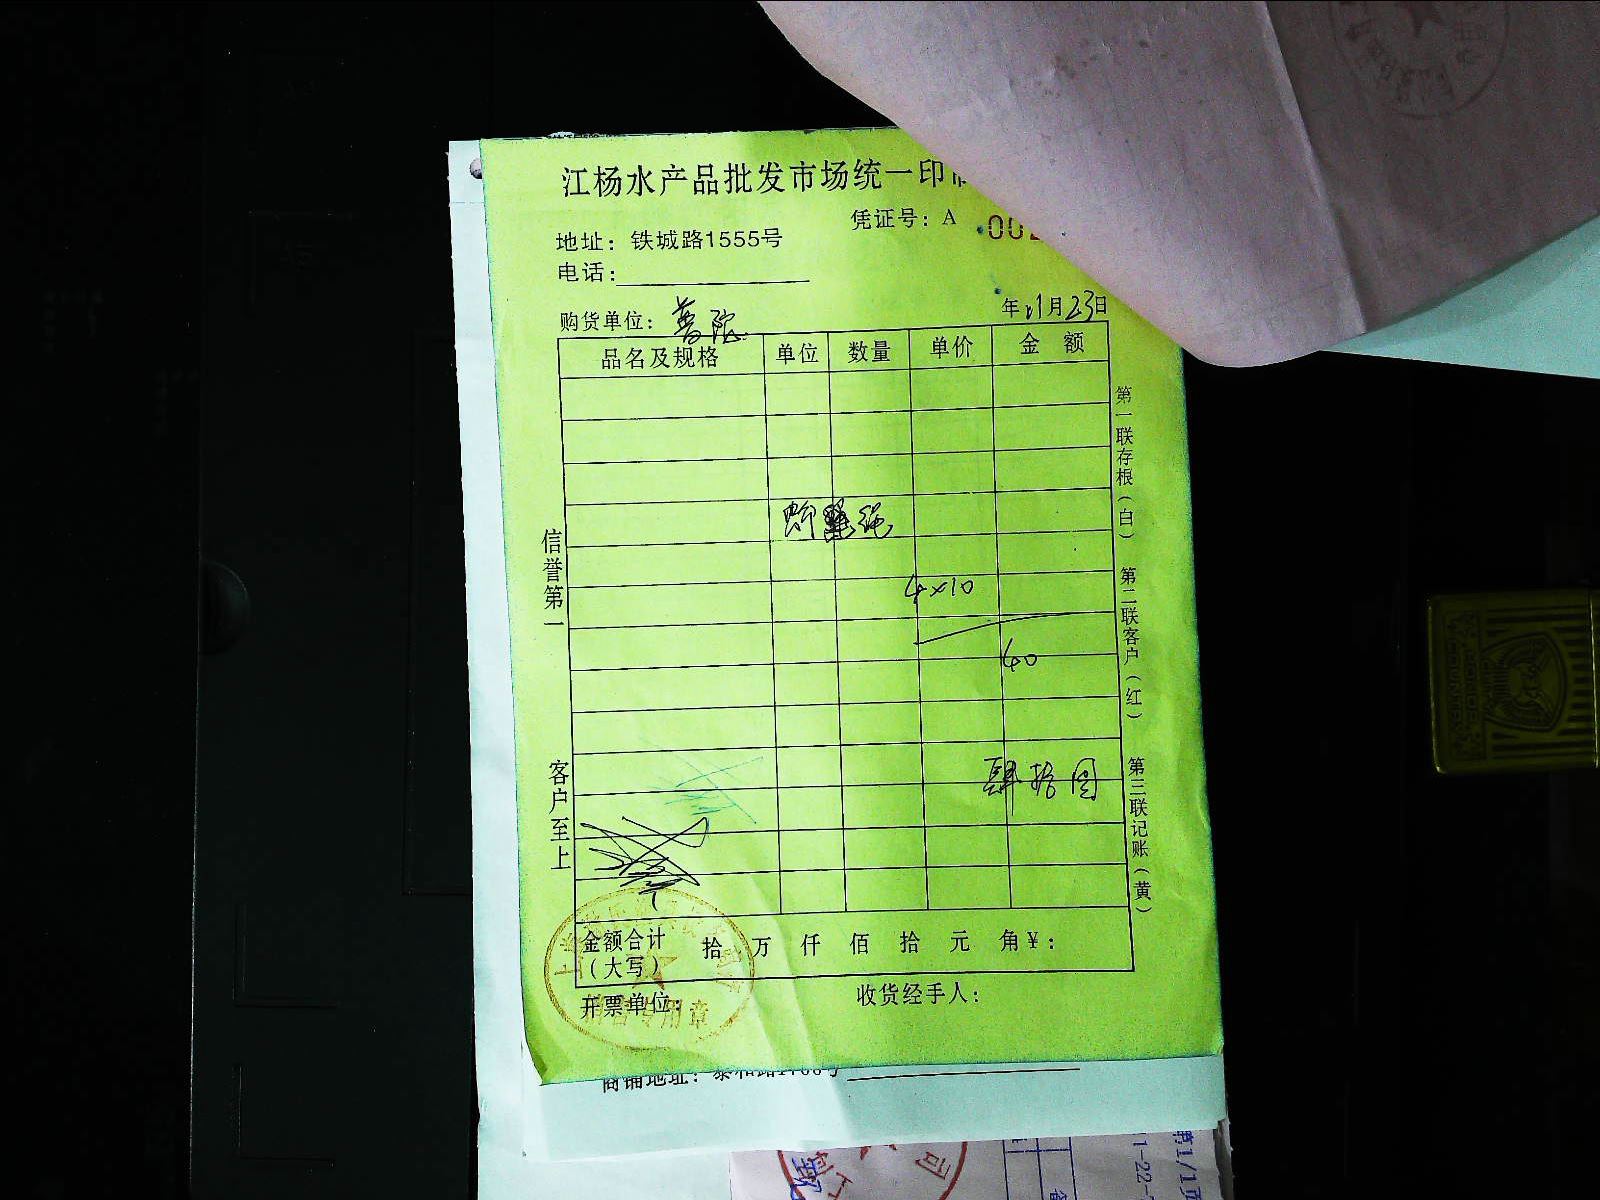 江杨水产品批发市场统一印
凭证号：A 002
地址：铁城路1555号
电话：
购货单位：普陀
年11月23日
品名及规格 单位 数量 单价 金 额
4×10
40
肆拾圆
金额合计（大写） 拾 万 仟 佰 拾 元 角¥：
开票单位： 收货经手人：
专用章
信誉第一
客户至上
第一联存根（白）
第二联客户（红）
第三联记账（黄）
商铺地址：泰和路
第1/1页
11-22-
司